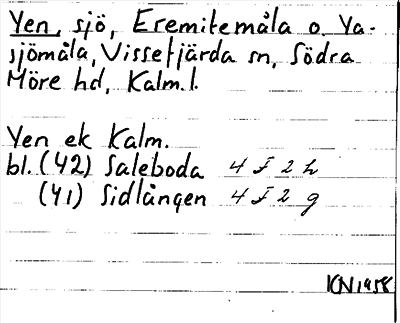 Yen, sjö, Eremitemåla o. Ya-
sjömåla, Vissefjärda sn, Södra
Möre hd, Kalm. l.
Yen ek Kalm.
bl. (42) Saleboda 4 F 2 h
(41) Sidlången 4 F 2 g
KN 1958